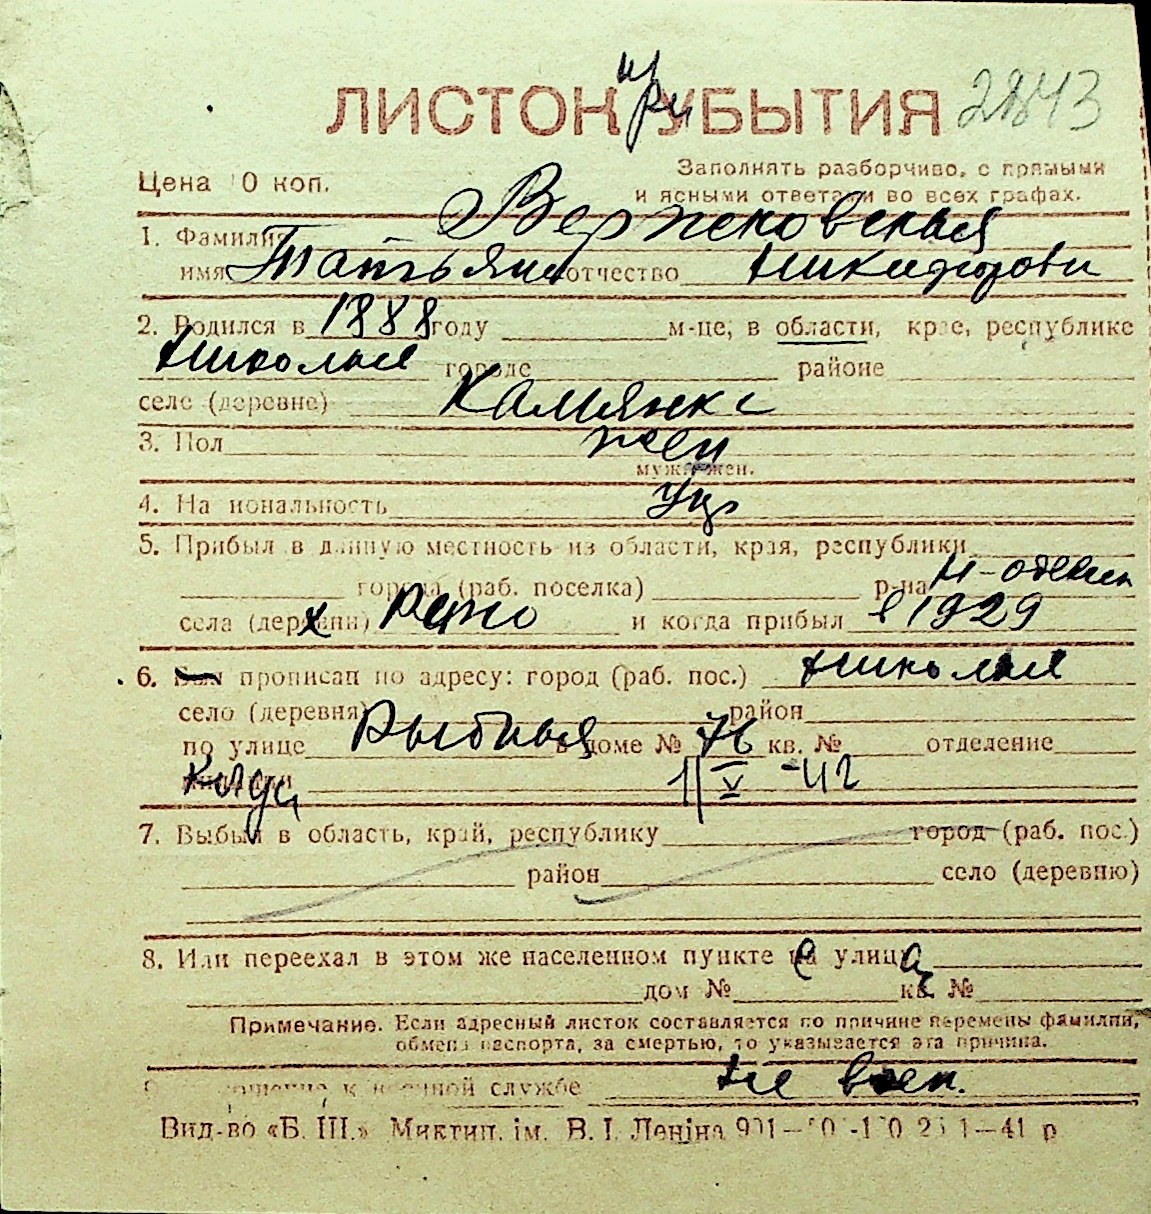 ЛИСТОК УБЫТИЯ 2843
при
Цена 10 коп.
Заполнять разборчиво, с прямыми
и ясными ответами во всех графах.
1. Фамилия Вержековская
имя Татьяна отчество Никифоровн
2. Родился в 1888 году м-це, в области, крае, республике
Николаев городе районе
селе (деревне) Камянке
3. Пол жен
муж. жен.
4. Национальность Укр
5. Прибыл в данную местность из области, края, республики
города (раб. поселка) р-на Н-одесск
села (деревни) и когда прибыл в 1929
6. Был прописан по адресу: город (раб. пос.) Николаев
село (деревня) район
по улице Рыбная в доме № 76 кв. № отделение
Когда 1/V-42
7. Выбыл в область, край, республику город (раб. пос.)
район село (деревню)
8. Или переехал в этом же населенном пункте с улицы
дом № кв. №
Примечание. Если адресный листок составляется по причине перемены фамилии,
обмена паспорта, за смертью, то указывается эта причина.
к военной службе не воен.
Вид-во «Б. Ш.» Миктип. ім. В. І. Леніна